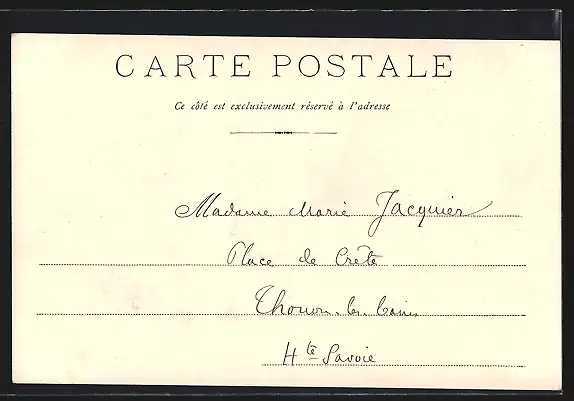 CARTE POSTALE
Ce côté est exclusivement réservé à l'adresse
Madame Marie Jacquier
Place de Crête
Thonon-les-Bains
Hte Savoie